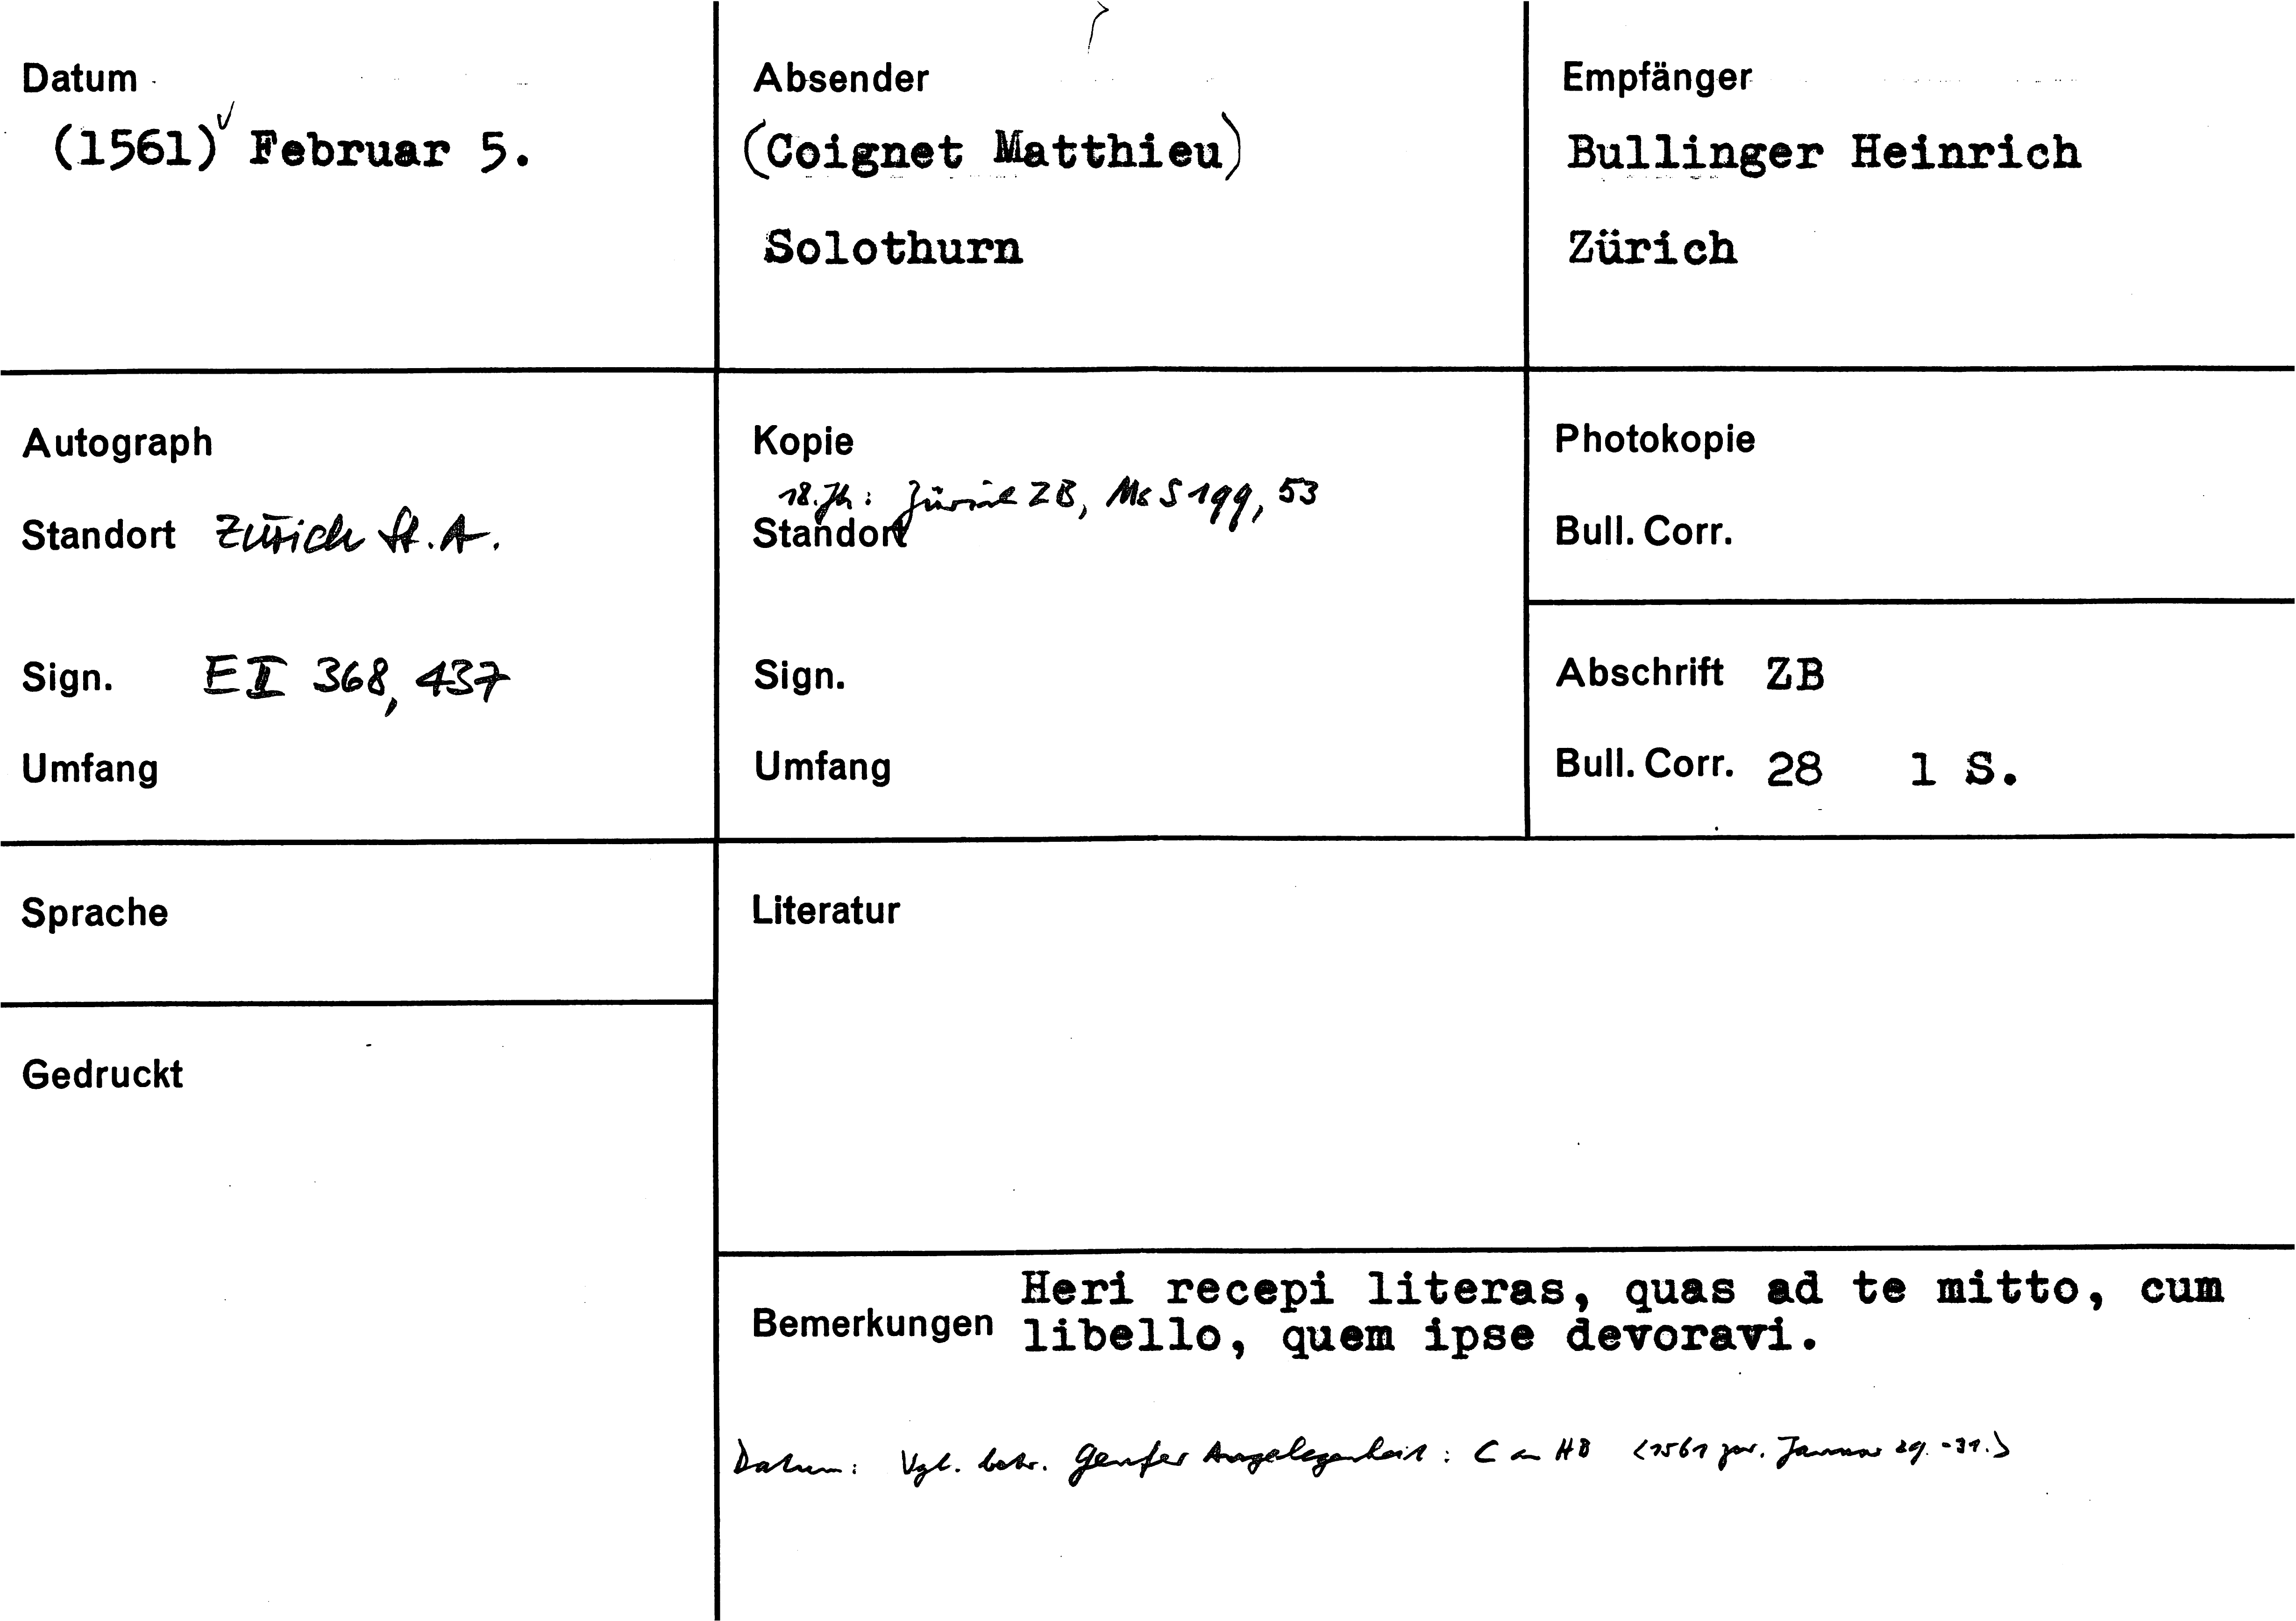 Datum
(1561) Februar 5.
Absender
(Coignet Matthieu)
Solothurn
Empfänger
Bullinger Heinrich
Zürich
Autograph
Standort Zürich St.A.
Sign. E II 368, 437
Umfang
Kopie
18. Jh: Zürich ZB, Ms S 199, 53
Standort
Sign.
Umfang
Photokopie
Bull. Corr.
Abschrift ZB
Bull. Corr. 28 1 S.
Sprache
Literatur
Gedruckt
Bemerkungen Heri recepi literas, quas ad te mitto, cum
libello, quem ipse devoravi.
Datum: Vgl. betr. Genfer Angelegenheit: C an HB <1561 Januar 29.-31.>